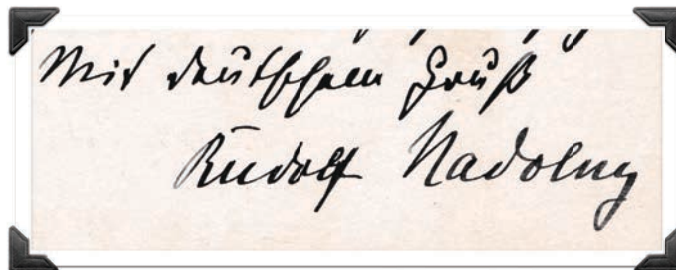 Mit deutschem Gruß
Rudolf Nadolny